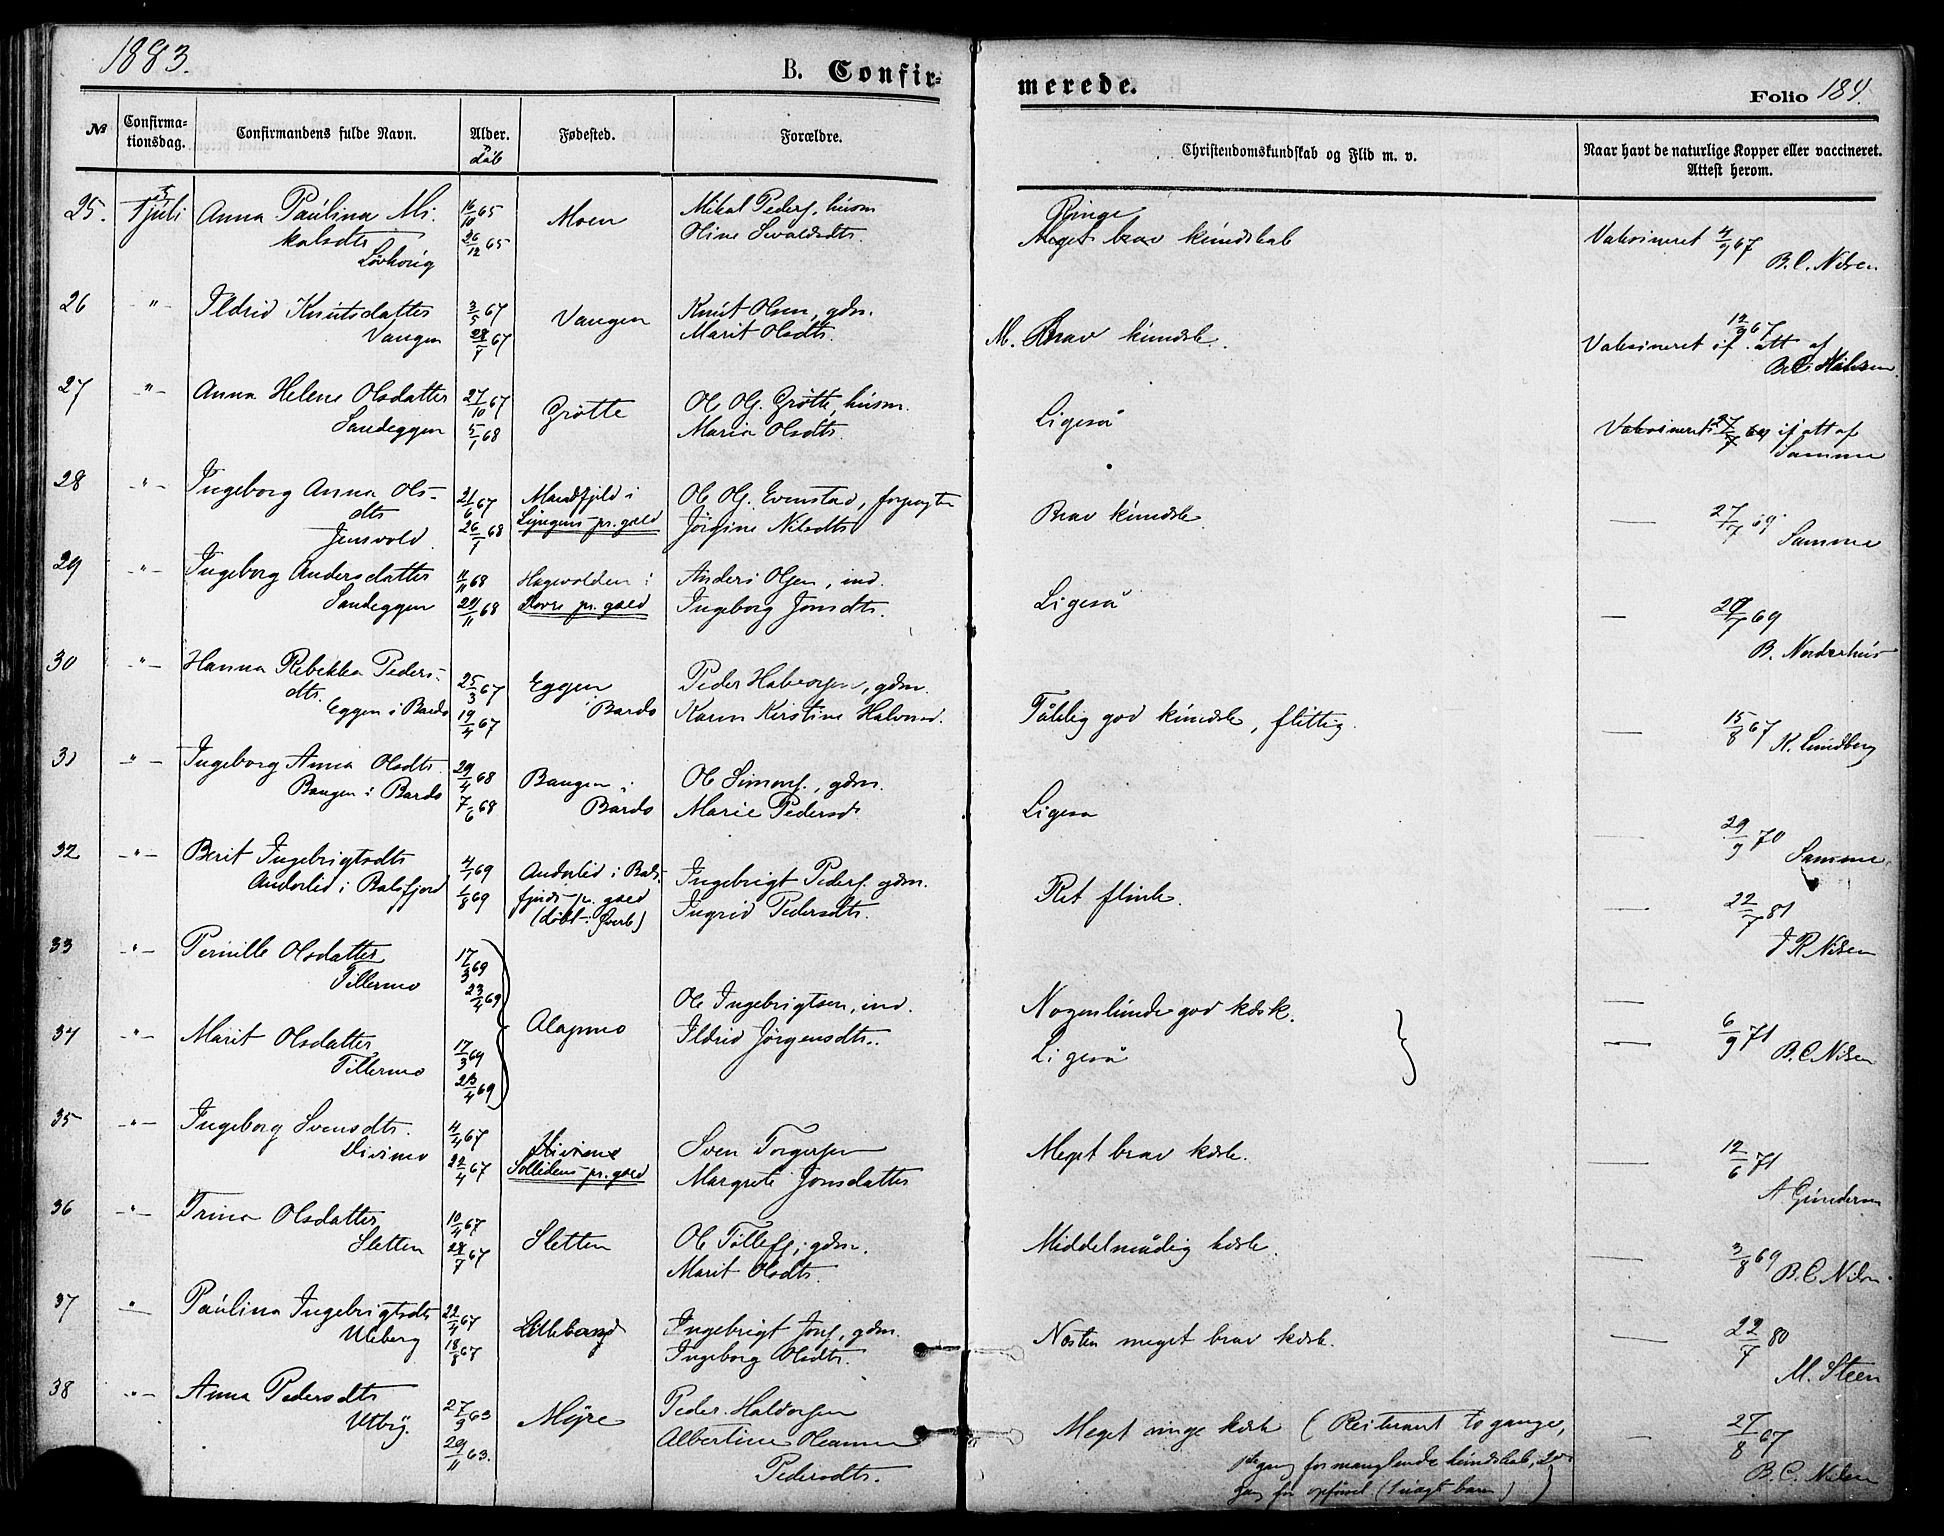 1883.
B. Confir=
merede.
Folio 184.
№
Confirma=
tionsdag.
Confirmandens fulde Navn.
Alder.
Døb
Fødested.
Forældre.
Christendomskundskab og Flid m. v.
Naar havt de naturlige Kopper eller vaccineret.
Attest herom.
25. Juli Anna Paulina Mi- 16/10 65 Moen Mikal Peders., husm Ringe
kalsdtr 26/12 65 Oline Sivaldsdtr. Meget brav kundskab Vaksineret 4/9 67
Løvhoug B. C. Nilsen
26 -"- Ildrid Knutsdatter 3/5 67 Vangen Knut Olsen, gdm. M. Brav kundsk. 12/9 67
Vangen Marit Olsdtr. Vaksineret if. att af
B. C. Nilsen.
27 -"- Anna Helene Olsdatter 27/10 67 Grøtte Ole Ols. Grøtte, husm. Ligeså Vaksineret if att af
Sandeggen 5/1 68 Maria Olsdtr. Samme
28 -"- Ingeborg Anna Ols- 21/6 67 i Ole Ols. Evenstad, forpagter Brav kundsk. — 27/7 69
dtr 26/1 68 pr.gjeld Jørgine Nilsdtr Samme
Jensvold.
29 -"- Ingeborg Andersdatter Hagevolden i Anders Olsen, ind. Ligeså —
Sandeggen 29/11 68 Dovre pr. gjeld Ingeborg Jonsdtr. 29/7 69
B. Norderhus
30 -"- Hanna Rebekka Peders- 25/3 67 Eggen Peder Halvorsen, gdm.
dtr. Eggen i Bardo 19/4 67 i Bardo Karen Kirstine Halvorsd. Tålelig god kundsk, flittig. — 15/8 67
K. Lundberg
31 -"- Ingeborg Anna Olsdtr. 29/4 68 Bangen i Ole Simons., gdm. Ligesa
Bangen i Bardo 7/6 68 Bardo Marie Pedersd. — 29/9 70
Samme.
32 -"- Berit Ingebrigtsdtr 4/1 69 Anderlid i Bals- Ingebrigt Peders. gdm. Ret flink. — 22/7 81
Anderlid i Balsfjord 1/8 69 fjords pr. gjeld Ingrid Pedersdtr. J R Nilsen
(døbt i Øverb)
33 -"- Pernille Olsdatter 17/3 69
Tillermo 23/4 69 Alapmo Ole Ingebrigtsen, ind. Nogenlunde god kdsk. —
34 -"- Marit Olsdatter 17/3 69 Ildrid Jørgensdtr. Ligeså — 6/9 71
Tillermo 23/4 69 B. C. Nilsen
35 -"- Ingeborg Svensdtr. 4/4 67 Divimo Sven Torgersen Meget brav kdsk. — 12/6 71
Divimo 22/4 67 pr. gjeld Margrete Jonsdatter A Gundersen
36 -"- Trina Olsdatter 10/4 67 Sletten Ole Tollefs., gdm. Middelmådig kdsk. — 3/8 69
Sletten 28/7 67 Marit Olsdtr. B. C. Nilsen.
37 -"- Paulina Ingebrigtsdtr 22/4 67 Ingebrigt Jons., gdm. Næsten meget brav kdsk. — 22/7 80
Uleberg 18/8 67 Ingeborg Olsdtr. M. Steen
38 -"- Anna Pedersdtr 27/9 63 Myre Peder Haldorsen Meget ringe kdsk (Restaneret to gange, — 27/8 67
Utby. 29/11 63. Albertine Oleanna 1ste gang for manglende kundskab, 2den B. C. Nilsen
Pedersdtr. gang for opførsel )